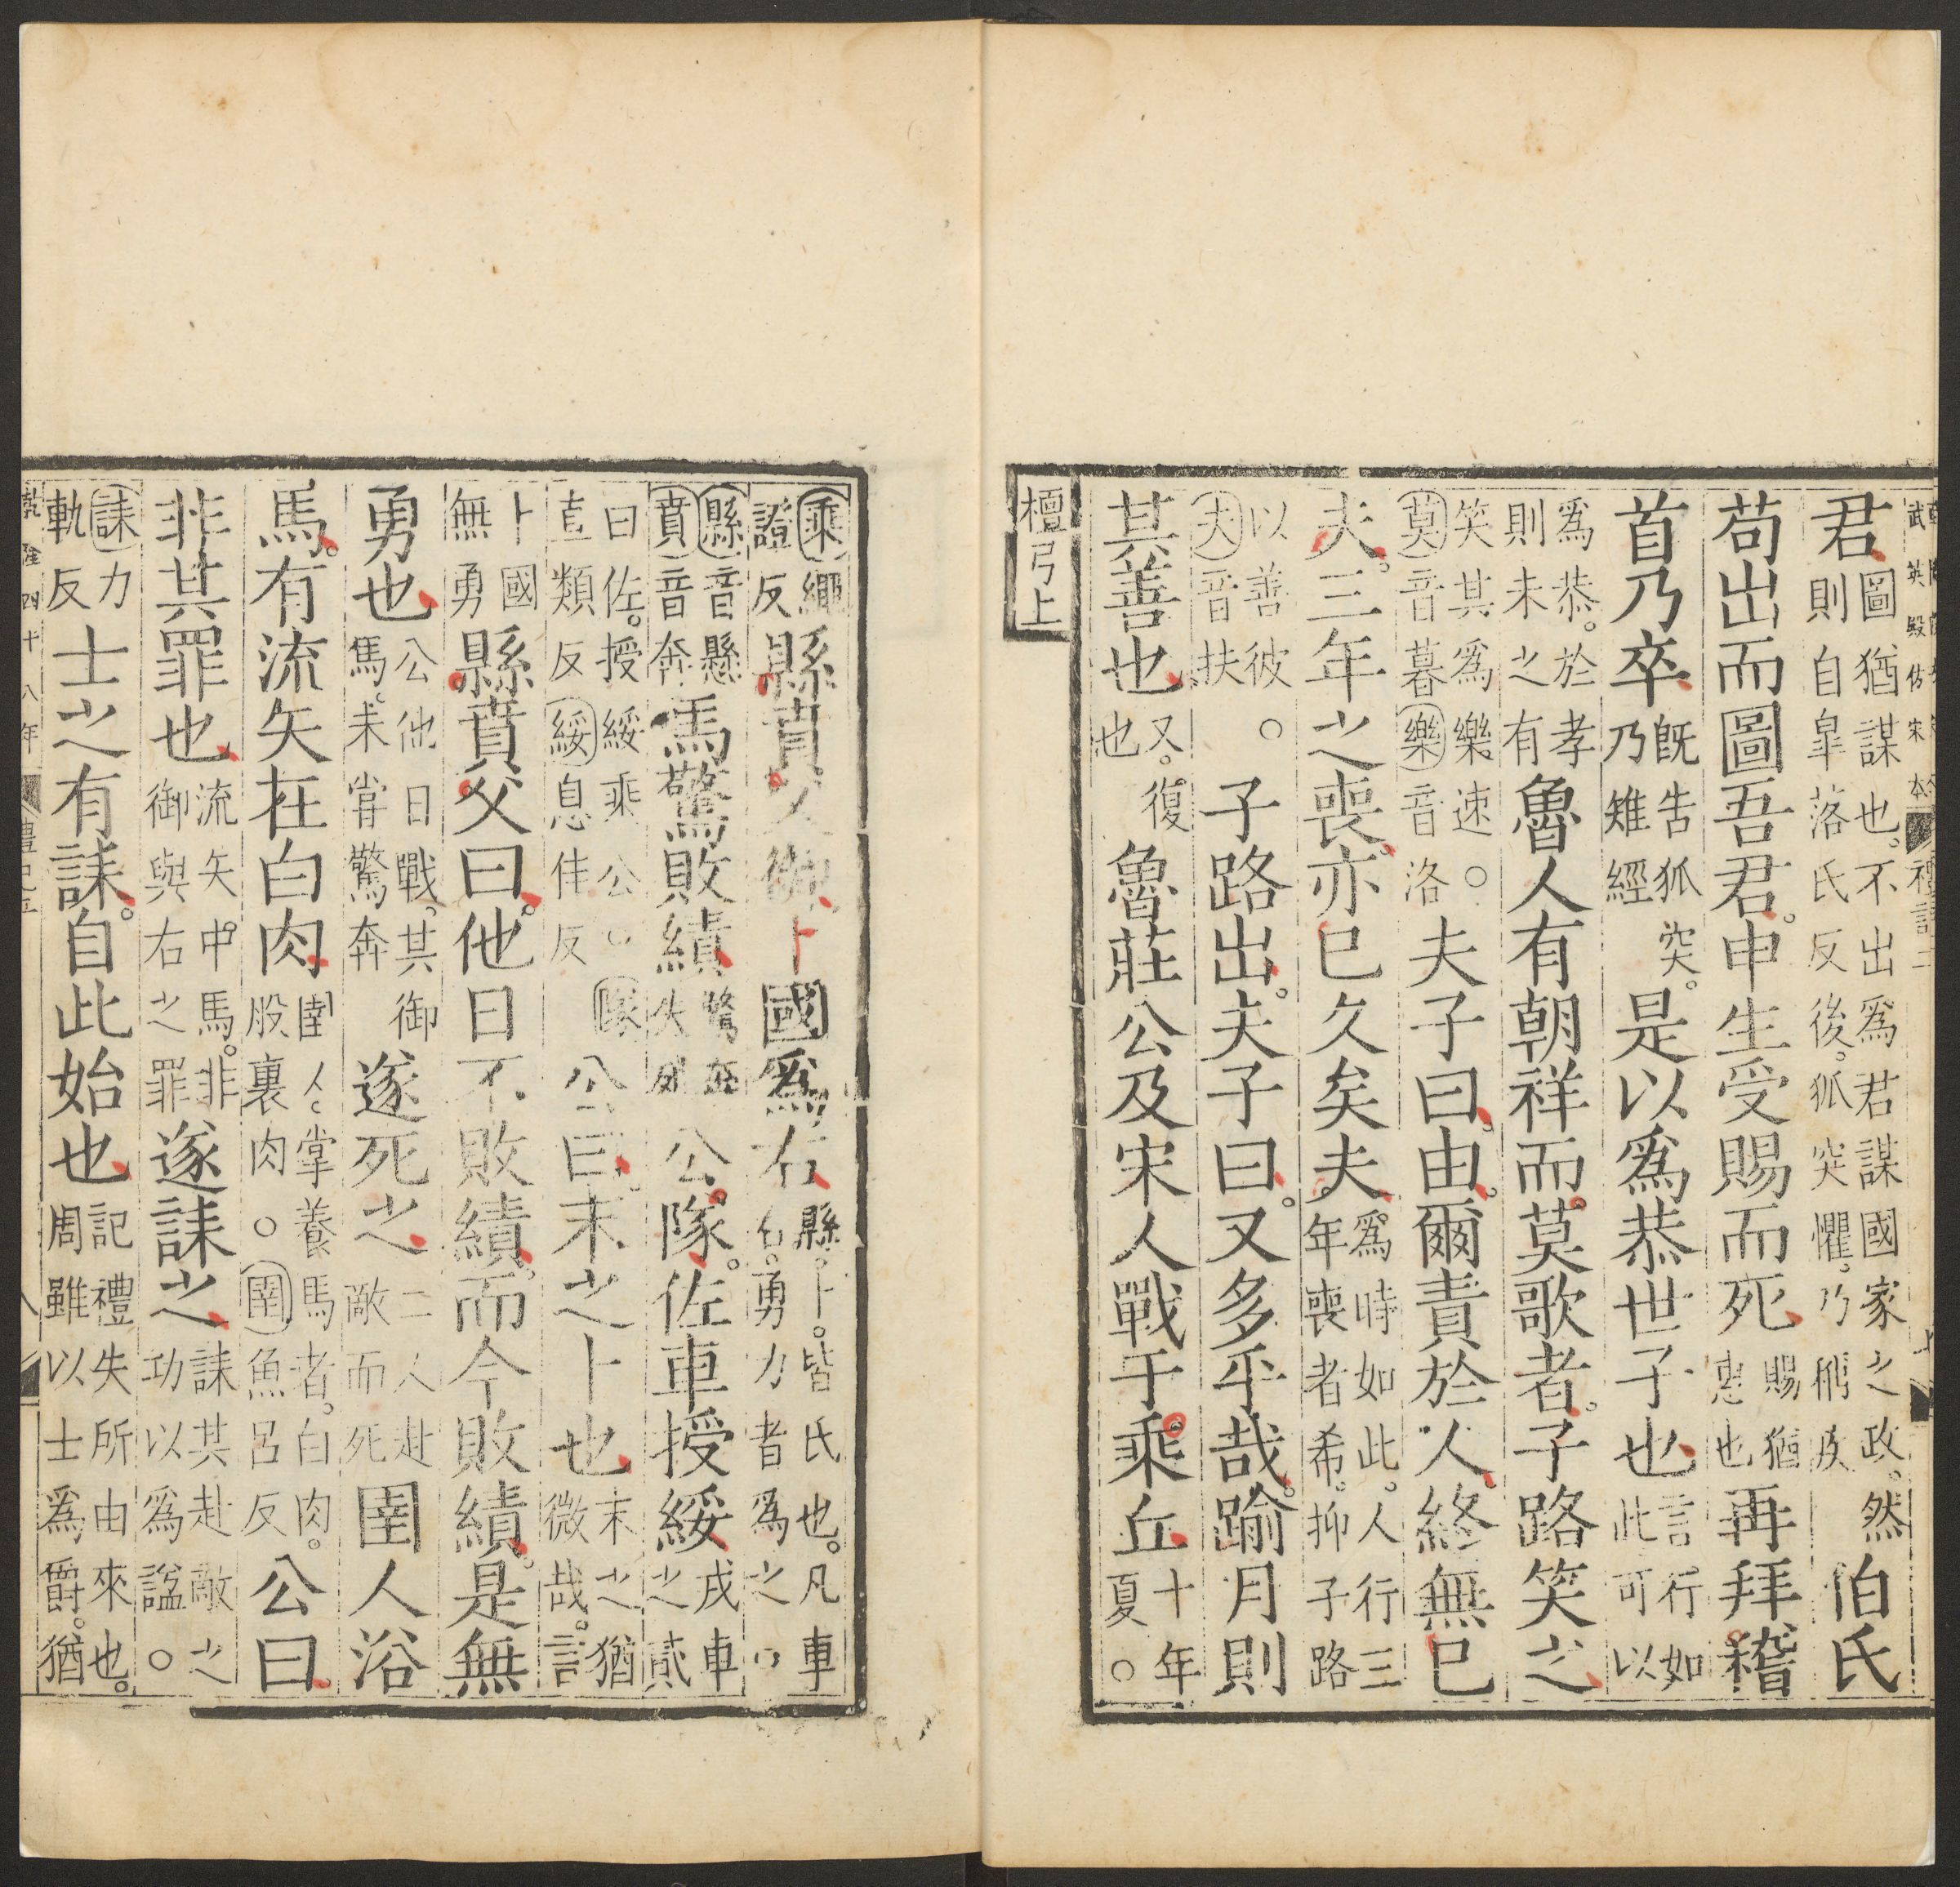 君圖猶謀也。不出爲君謀國家之政。然則自皐落氏反後。狐突懼。乃稱疾伯氏
苟出而圖吾君。申生受賜而死賜猶惠也再拜稽
首乃卒旣告狐突。乃雉經是以爲恭世子也言行如此可以
爲恭。於孝則未之有魯人有朝祥而莫歌者。子路笑之
笑其爲樂速。○莫音暮樂音洛夫子曰。由。爾責於人。終無已
夫。三年之喪。亦已久矣夫。爲時如此。人行三年喪者希。抑子路
以善彼。○夫音扶子路出。夫子曰。又多乎哉。踰月則
其善也又。復也魯莊公及宋人戰于乘丘十年夏。○
檀弓上
乘繩證反縣賁父御卜國爲右縣。卜。皆氏也。凡車右。勇力者爲之。○
縣音懸賁音奔馬驚敗績驚奔失列公隊。佐車授綏戎車之貳
曰佐。授綏乘公。○隊直類反綏息佳反公曰。末之卜也末之猶微哉。言
卜國無勇縣賁父曰。他日不敗績。而今敗績。是無
勇也公他日戰。其御馬。未嘗驚奔遂死之二人赴敵而死圉人浴
馬。有流矢在白肉圉人。掌養馬者。白肉。股裏肉。○圉魚呂反公曰
非其罪也流矢。中馬。非御與右之罪遂誄之誄其赴敵之功以爲諡。○
誄力軌反士之有誄。自此始也記禮失所由來也。周雖以士爲爵。猶